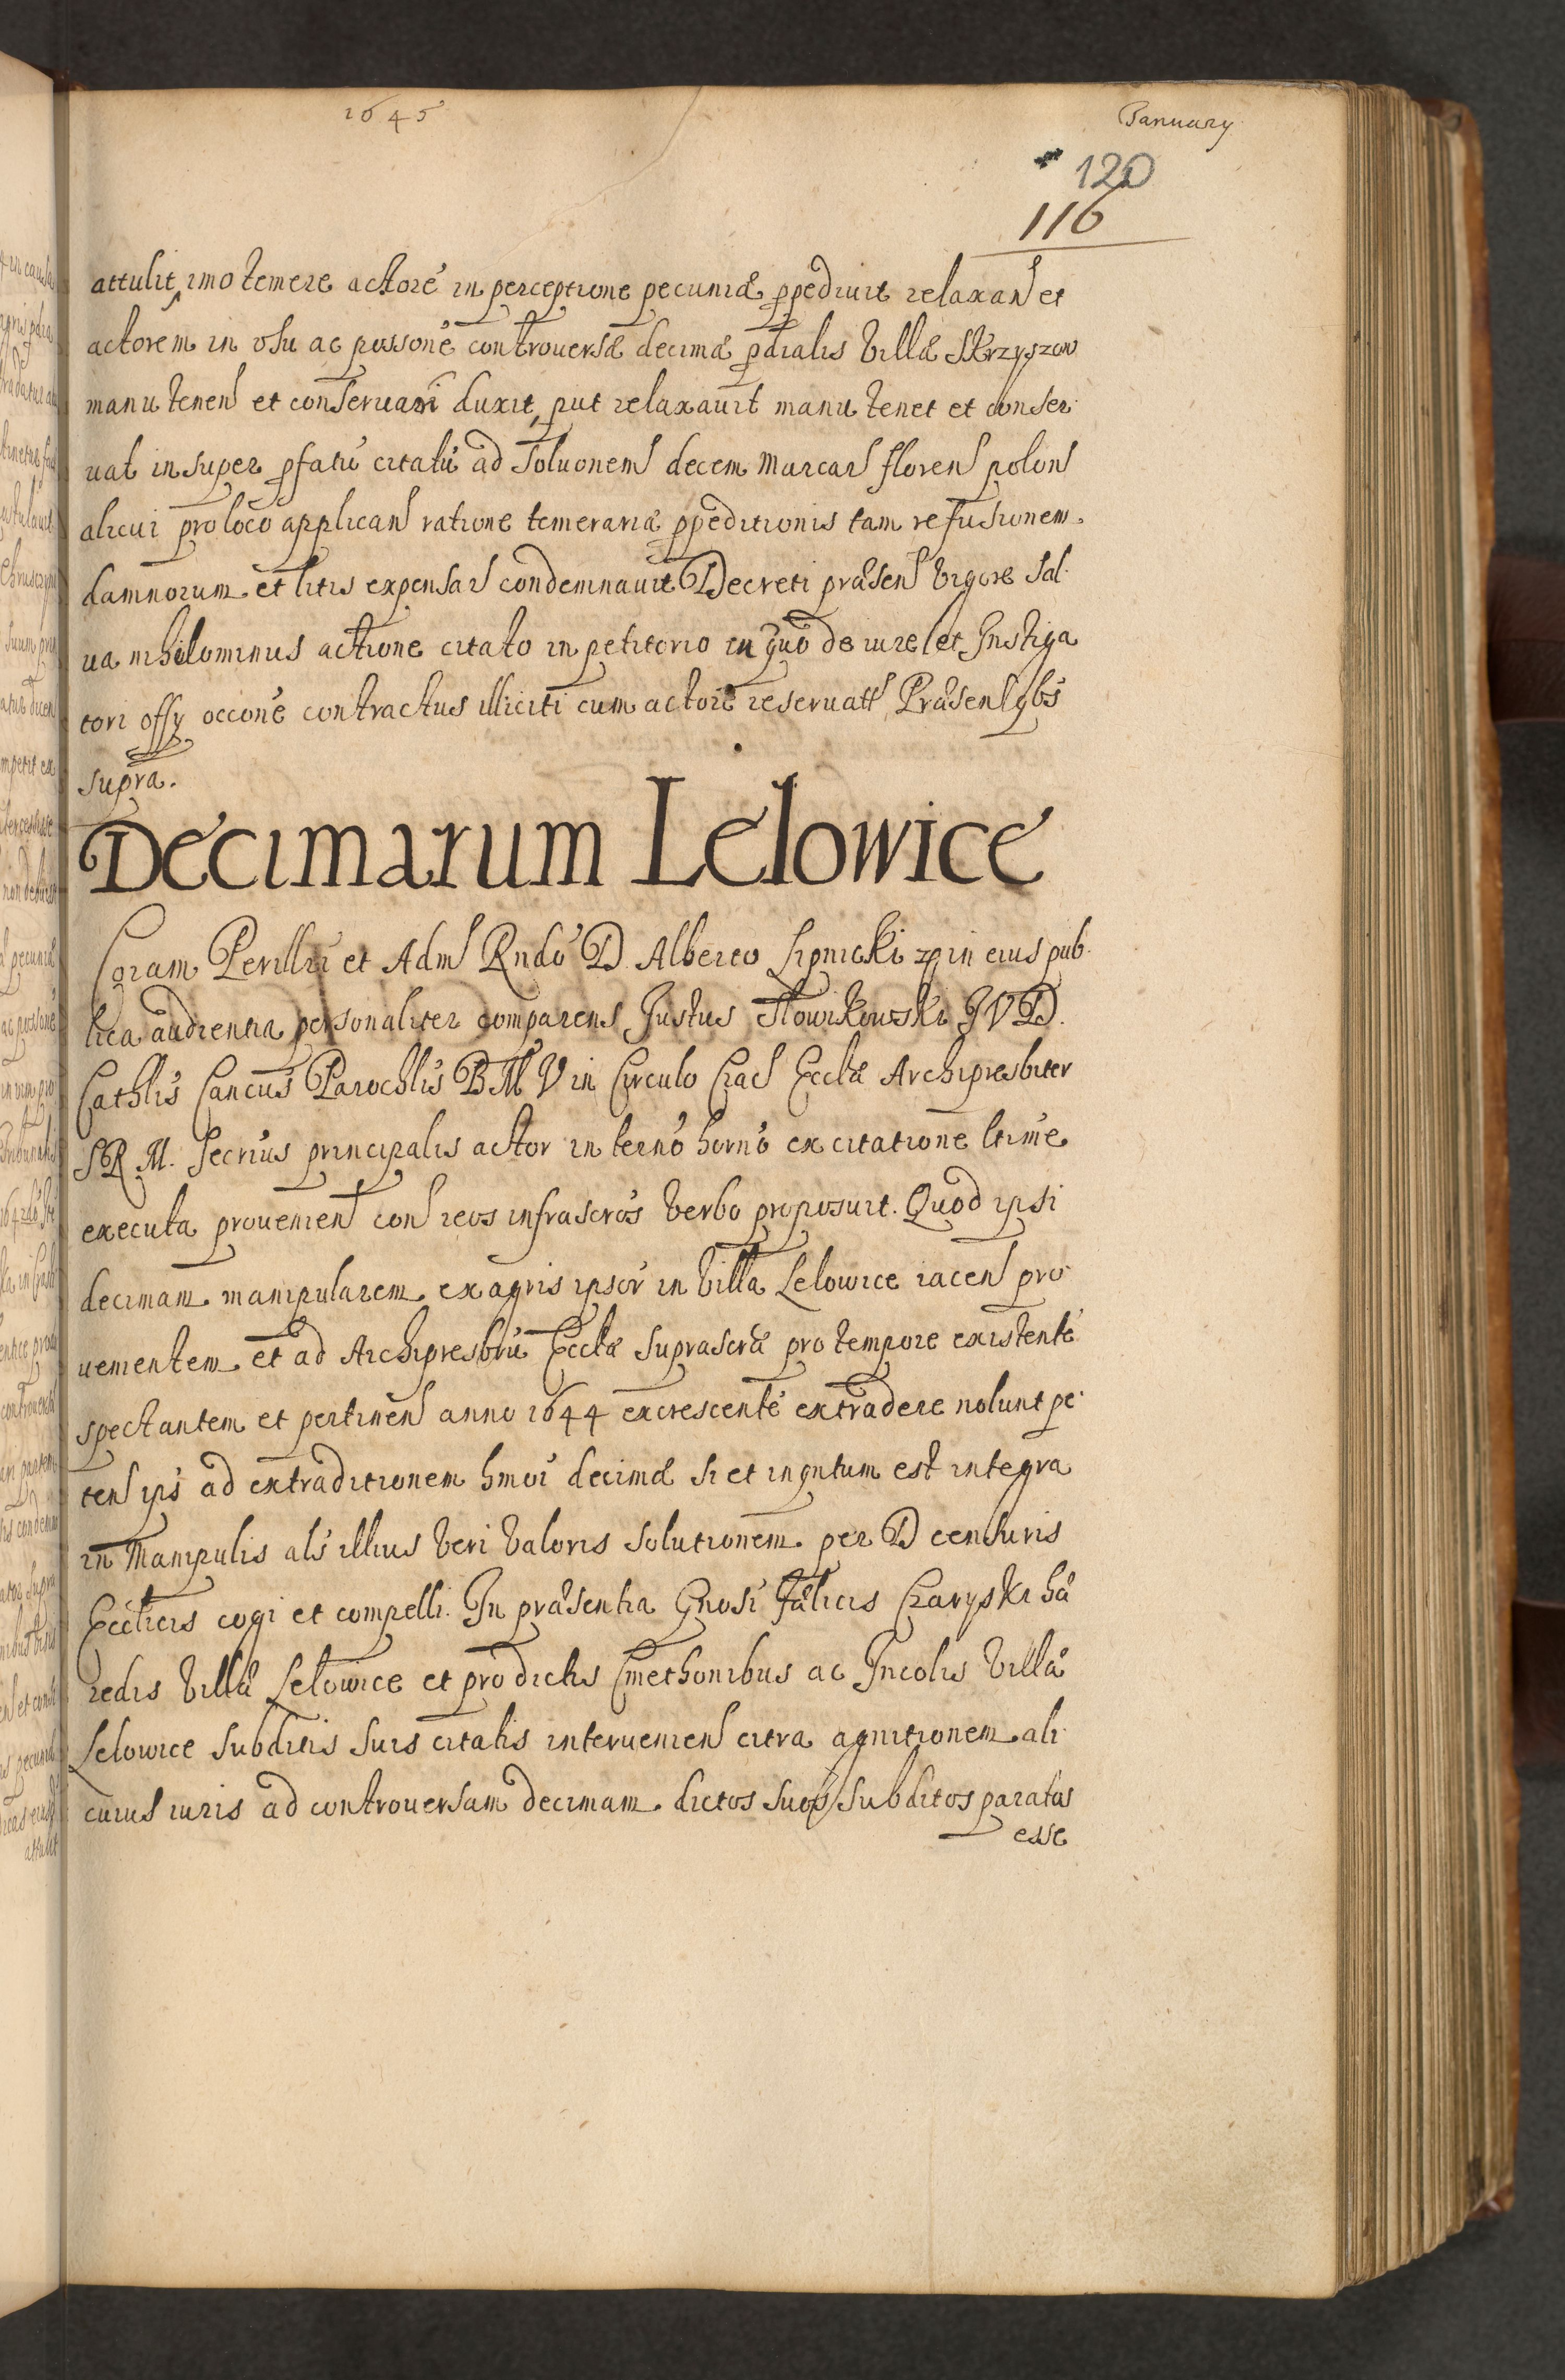 1645
January
120
116
attulit, imo temere actorē in perceptione pecuniæ ꝑpediuit relaxan et
actorem in vsu ac possonē controuersæ decimæ ꝑdialis Villæ Skrzyszow
manutenen et conseruari duxit, put relaxauit manutenet et conser
uat insuper pfatū citatū ad soluonem decem Marcar floren polon
alicui pro loco applican ratione temerariæ ꝑpeditionis tam refusionem
damnorum et litis expensar condemnauit Decreti præsen vigore sal
ua nihilominus actione citato in petitorio in quo de iure et Instiga
tori offy occone contractus illiciti cum actore reseruatt Præsen qbs
supra.
Decimarum Lelowice
Coram Perillri et Adm Rndo D Alberto Lipnicki in eius pub
lica audientia personaliter comparens Justus Słowikowski J V D.
Cathlis Cancus Parochlis B M V in Circulo Crac Ecclæ Archipresbiter
S R M. Secrius principalis actor in terno horno ex citatione ltime
executa prouenien con reos infrascros verbo proposuit. Quod ipsi
decimam manipularem ex agris ipsor in Villa Lelowice iacen pro
uenientem et ad Archipresbrū Ecclæ suprascræ pro tempore existentē
spectantem et pertinen anno 1644 excrescentē extradere nolunt pe
ten ips ad extraditionem hmoi decimæ si et inqntum est integra
in Manipulis als illius veri valoris solutionem per D censuris
Ecclicis cogi et compelli. In præsentia Gnosi Fælicis Czaryski hæ
redis Villæ Lelowice et pro dictis Cmethonibus ac Incolis Villæ
Lelowice subditis suis citatis interuenien citra agnitionem ali
cuius iuris ad controuersam decimam dictos suos subditos paratos
esse